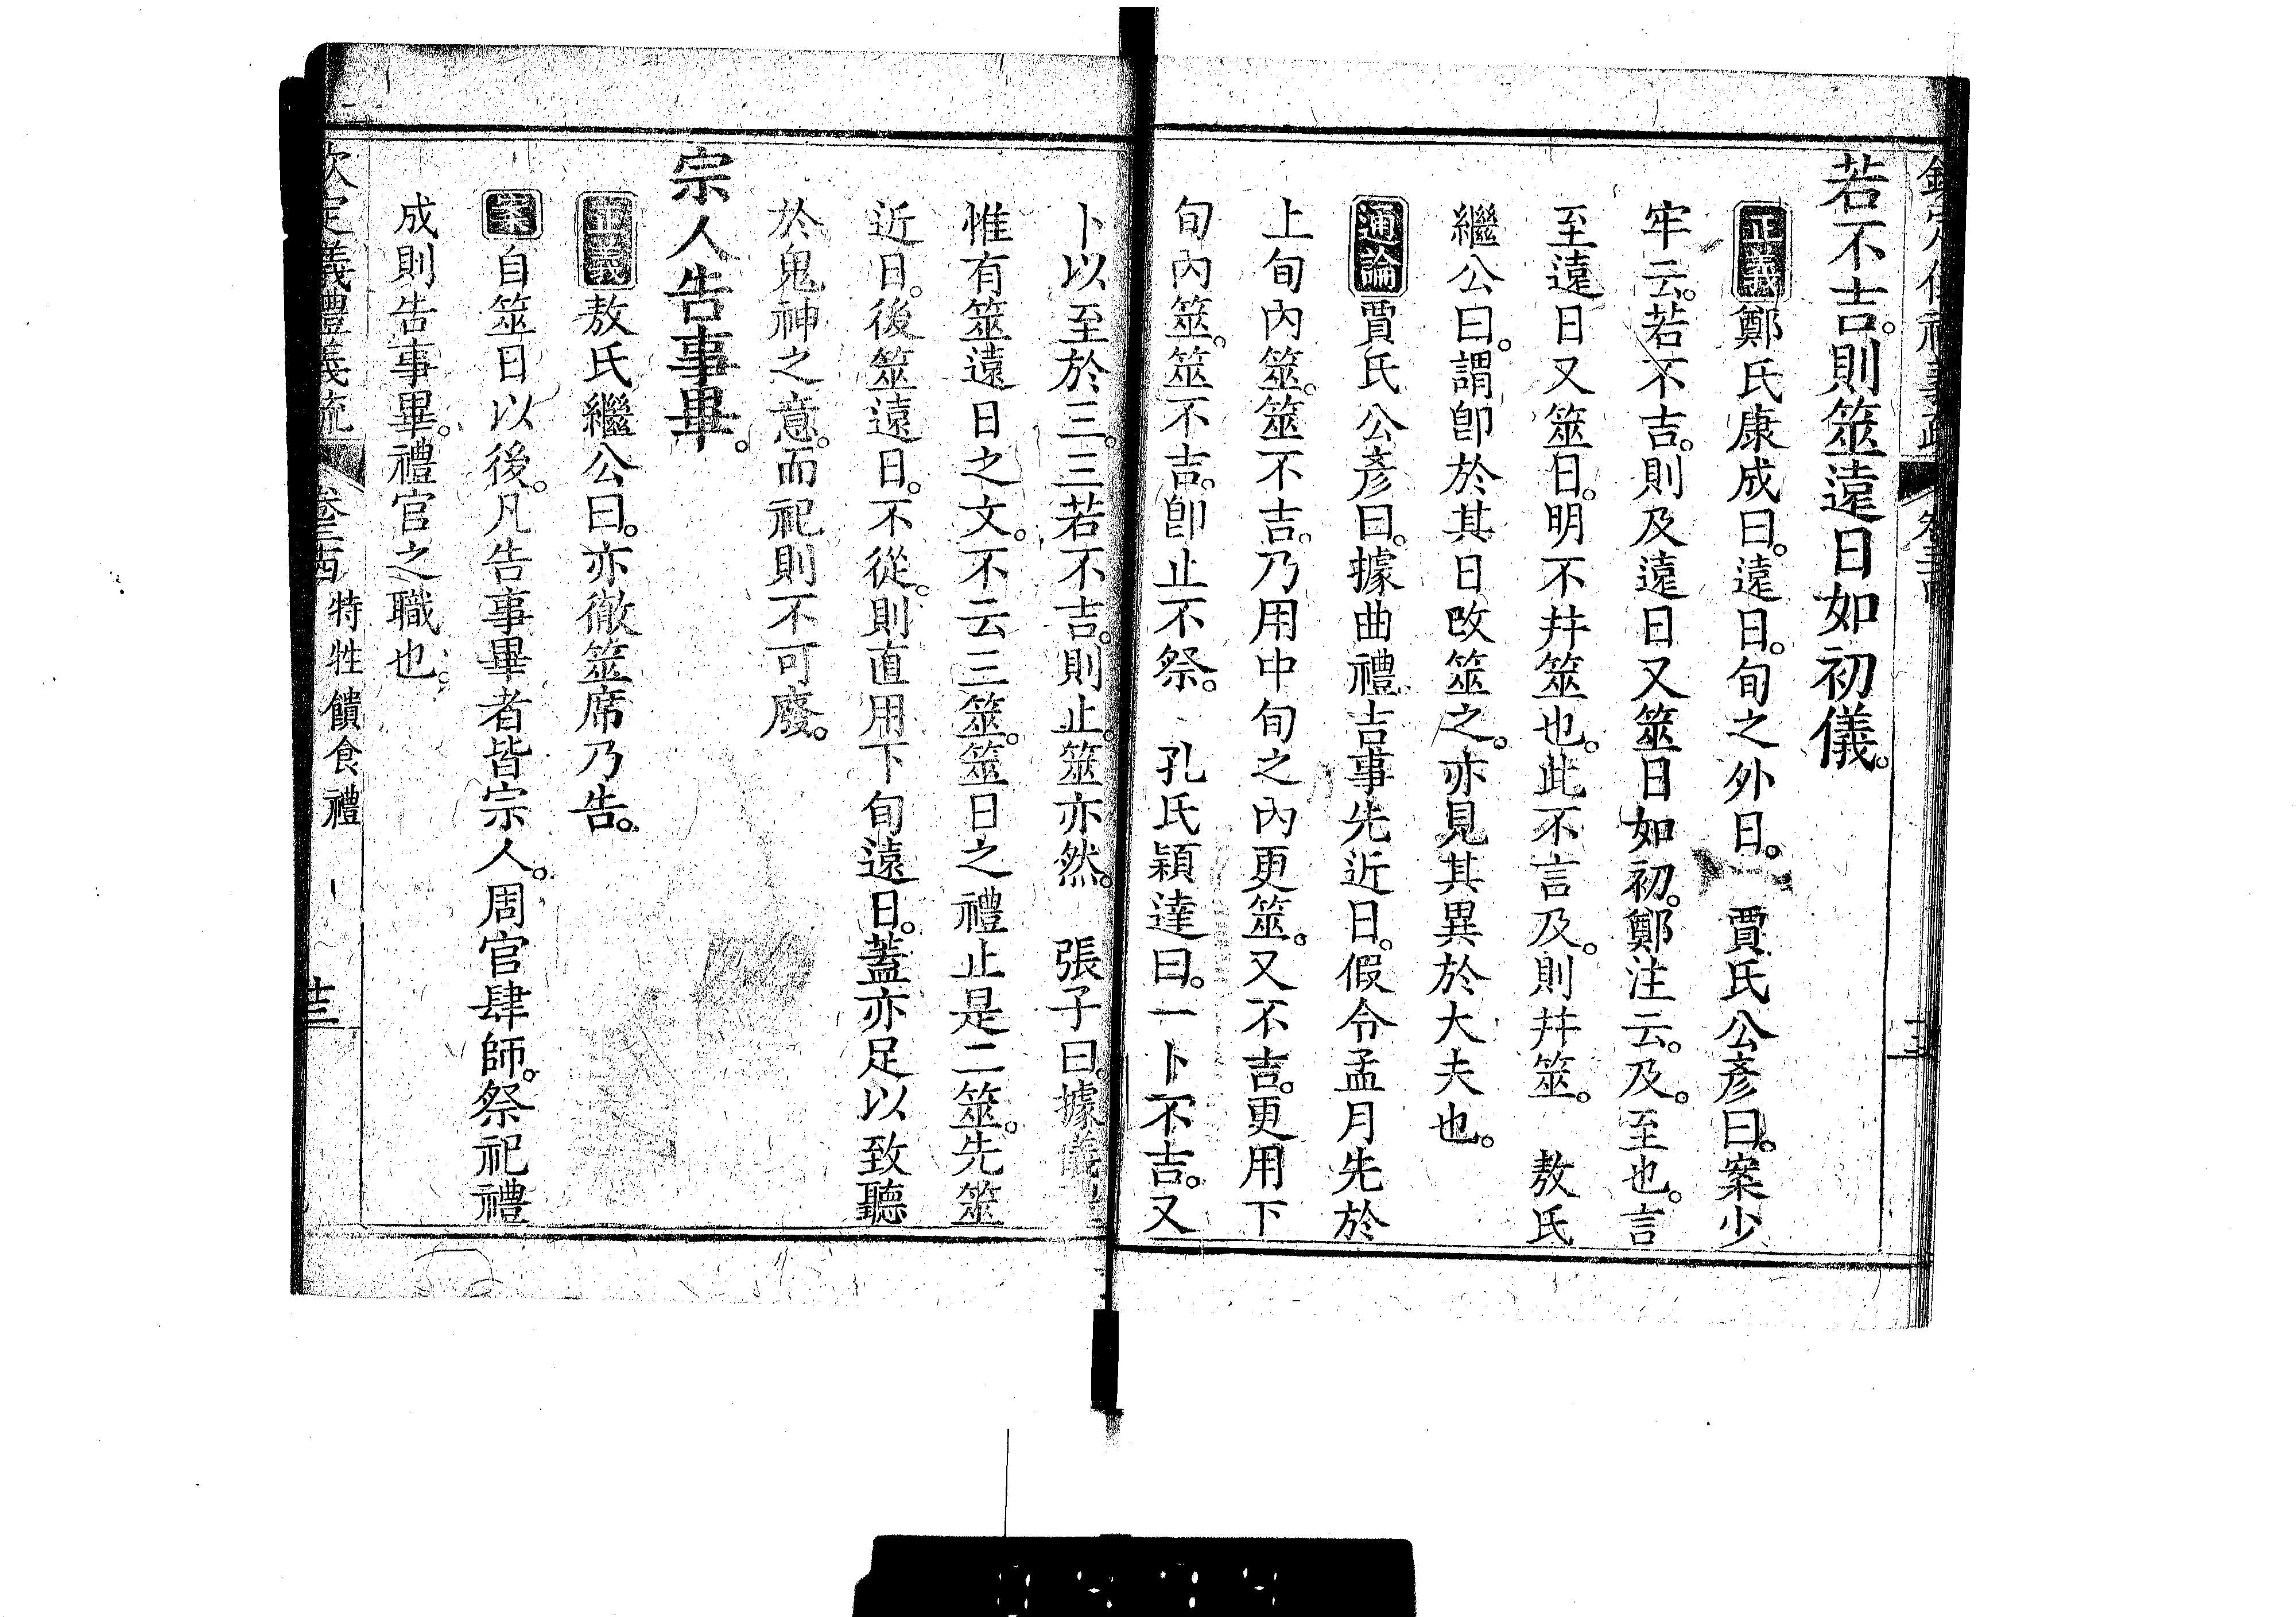 若不吉。則筮遠日如初儀。
正義鄭氏康成曰。遠日。旬之外日。 賈氏公彥曰。案少
牢云。若不吉。則及遠日又筮日如初。鄭注云。及。至也。言
至遠日又筮日。明不幷筮也。此不言及。則幷筮。 敖氏
繼公曰。謂卽於其日改筮之。亦見其異於大夫也。
通論賈氏公彥曰。據曲禮。吉事先近日。假令孟月先於
上旬內筮。筮不吉。乃用中旬之內更筮。又不吉。更用下
旬內筮。筮不吉。卽止不祭。 孔氏穎達曰。一卜不吉。又
卜以至於三。三若不吉。則止。筮亦然。 張子曰。據儀
惟有筮遠日之文。不云三筮。筮日之禮止是二筮。先筮
近日。後筮遠日。不從。則直用下旬遠日。蓋亦足以致聽
於鬼神之意。而祀則不可廢。
宗人告事畢。
正義敖氏繼公曰。亦徹筮席乃告。
案自筮日以後。凡告事畢者皆宗人。周官肆師。祭祀禮
成則告事畢。禮官之職也。
欽定儀禮義疏 卷三四 特牲饋食禮 廿三